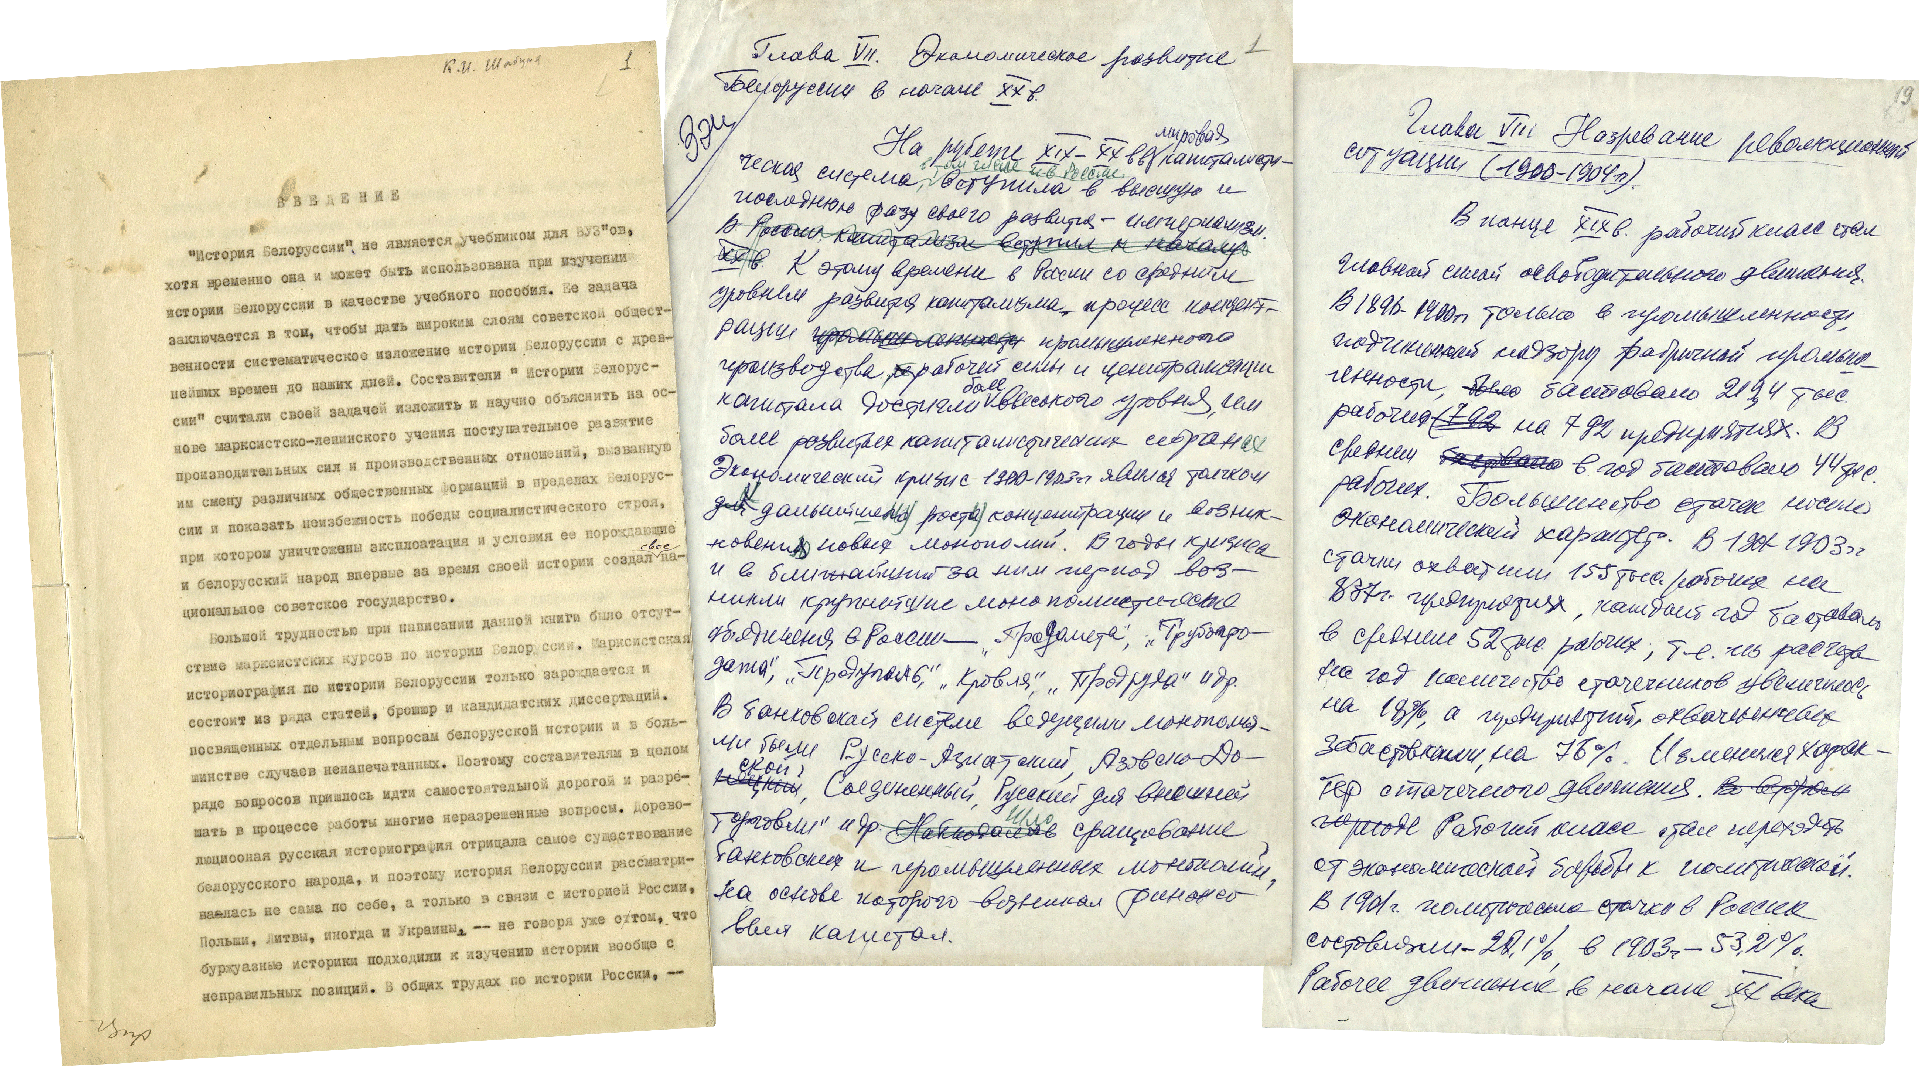 К.И. Шабуня
1
ВВЕДЕНИЕ
"История Белоруссии" не является учебником для ВУЗ"ов,
хотя временно она и может быть использована при изучении
истории Белоруссии в качестве учебного пособия. Ее задача
заключается в том, чтобы дать широким слоям советской общест-
венности систематическое изложение истории Белоруссии с древ-
нейших времен до наших дней. Составители " Истории Белорус-
сии" считали своей задачей изложить и научно объяснить на ос-
нове марксистско-ленинского учения поступательное развитие
производительных сил и производственных отношений, вызванную
им смену различных общественных формаций в пределах Белорус-
сии и показать неизбежность победы социалистического строя,
при котором уничтожены эксплоатация и условия ее порождающие
свое
и белорусский народ впервые за время своей истории создал на-
циональное советское государство.
Большой трудностью при написании данной книги было отсут-
ствие марксистских курсов по истории Белоруссии. Марксистская
историография по истории Белоруссии только зарождается и
состоит из ряда статей, брошюр и кандидатских диссертаций,
посвященных отдельным вопросам белорусской истории и в боль-
шинстве случаев ненапечатанных. Поэтому составителям в целом
ряде вопросов пришлось идти самостоятельной дорогой и разре-
шать в процессе работы многие неразрешенные вопросы. Дорево-
люционная русская историография отрицала самое существование
белорусского народа, и поэтому история Белоруссии рассматри-
валась не сама по себе, а только в связи с историей России,
Польши, Литвы, иногда и Украины, -- не говоря уже о том, что
буржуазные историки подходили к изучению истории вообще с
неправильных позиций. В общих трудах по истории России, --
1
Глава VII. Экономическое развитие
Белоруссии в начале XX в.
На рубеже XIX-XX вв мировая капиталисти-
ческая система, в том числе и в России, вступила в высшую и
последнюю фазу своего развития - империализм.
В России капитализм вступил к началу
XX в. К этому времени в России со средним
уровнем развития капитализма, процесс концент-
рации промышленности промышленного
производства, рабочей силы и централизации
капитала достигли более высокого уровня, чем
более развитых капиталистических странах
Экономический кризис 1900-1903 гг явился толчком
к дальнейшему росту концентрации и возник-
новению новых монополий. В годы кризиса
и в ближайший за ним период воз-
никли крупнейшие монополистические
объединения в России - „Продамета", „Трубопро-
дажа", „Продуголь", „Кровля", „Продруда" и др.
В банковской системе ведущими монополия-
ми были Русско-Азиатский, Азовско-До-
нской, Соединенный, Русский для внешней
торговли" и др. Шло сращивание
банковских и промышленных монополий,
на основе которого возникал финансо
вый капитал.
19
Глава VIII Назревание революционной
ситуации (1900-1904 гг).
В конце XIX в. рабочий класс стал
главной силой освободительного движения.
В 1896-1900 гг только в промышленности,
подчиненной надзору фабричной промыш-
ленности, было бастовало 219,4 тыс.
рабочих (792 на 792 предприятиях. В
среднем бастовало в год бастовало 44 тыс.
рабочих. Большинство стачек носило
экономический характер. В 1901-1903 гг
стачки охватили 155 тыс. рабочих на
837 предприятиях, каждый год бастовало
в среднем 52 тыс. рабочих, т.е. из расчета
на год количество стачечников увеличилось
на 18%, а предприятий, охваченных
забастовками, на 76%. Изменился харак-
тер стачечного движения. Во втором
периоде Рабочий класс стал переходить
от экономической борьбы к политической.
В 1901 г. политические стачки в России
составляли - 22,1%, в 1903 г - 53,2%.
Рабочее движение в начале XX века